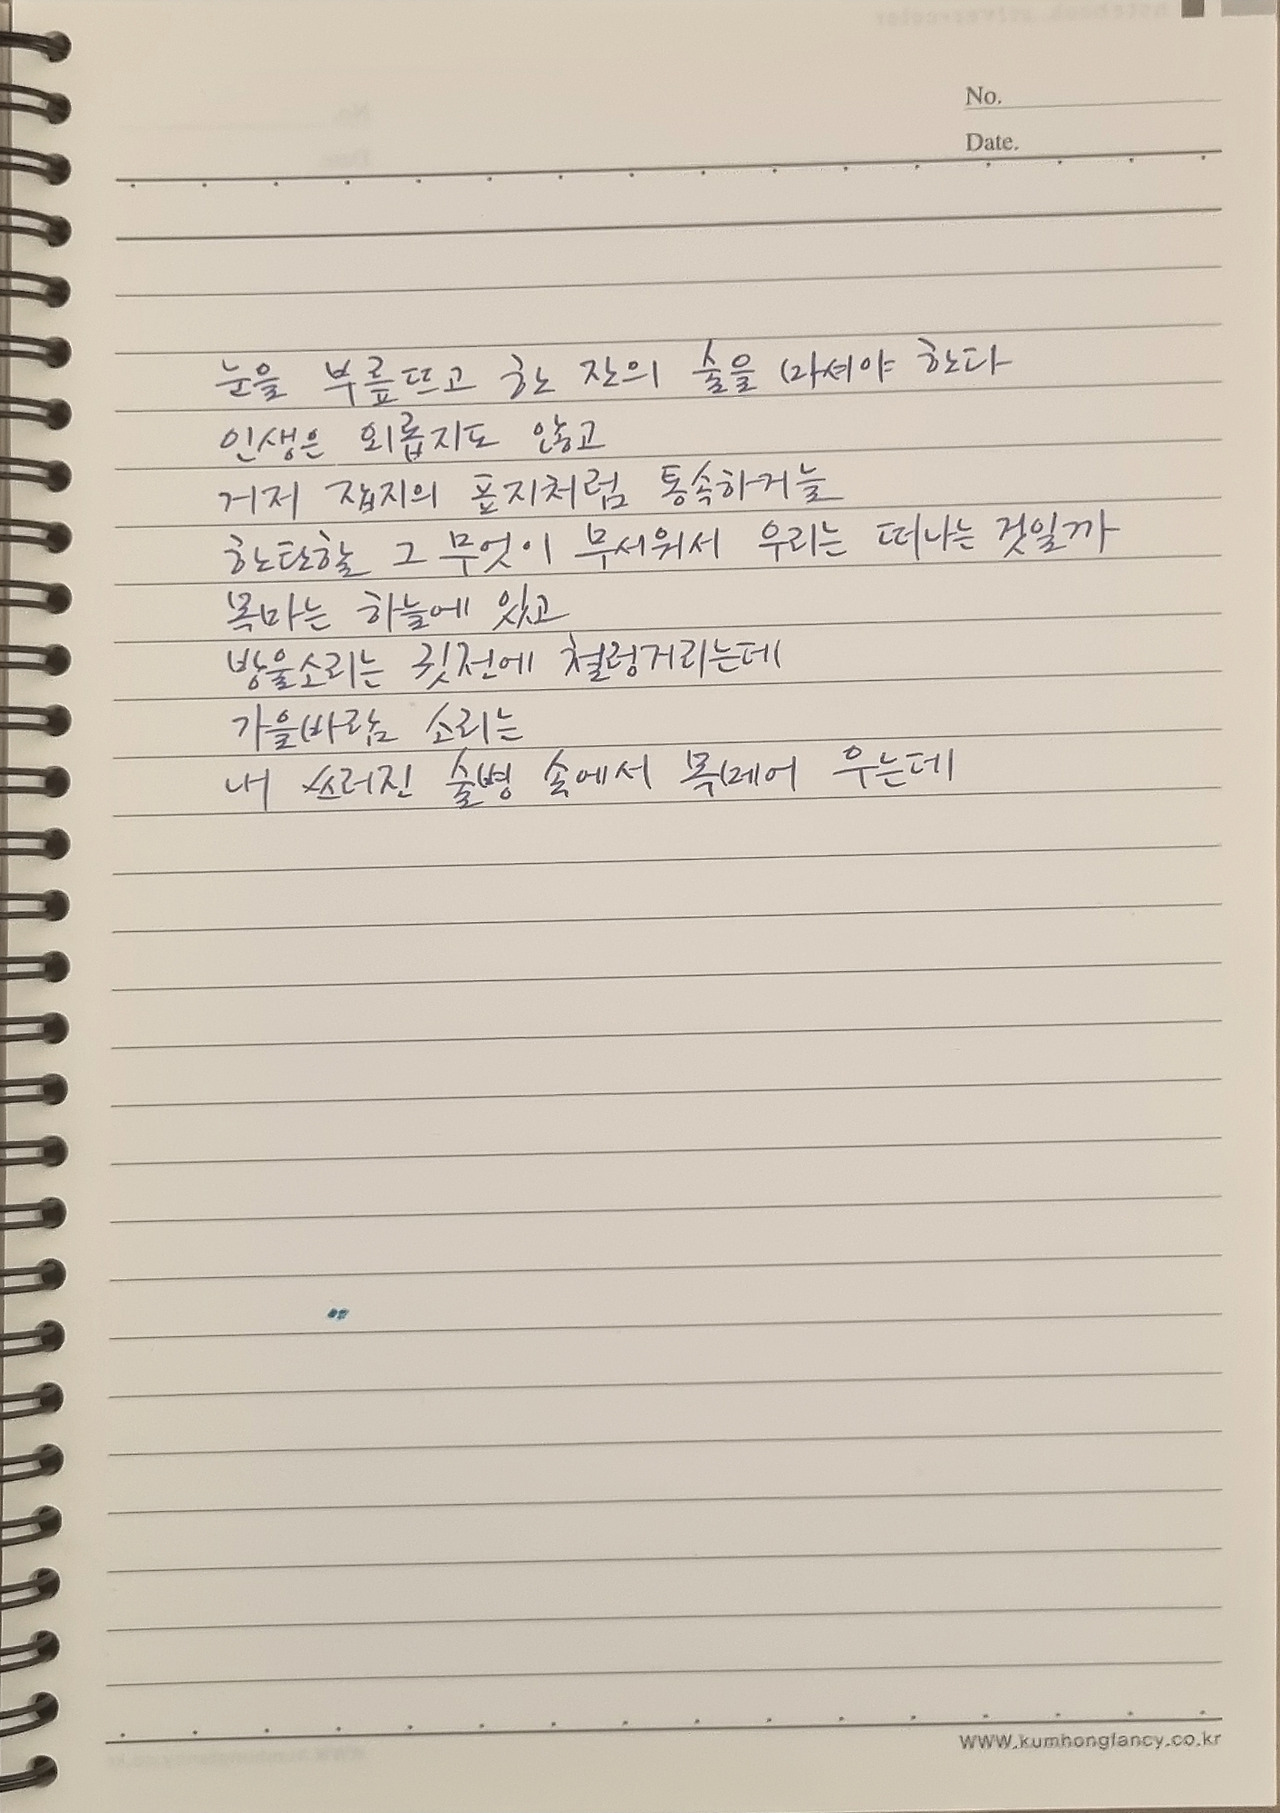 No.
Date.
눈을 부릎뜨고 한 잔의 술을 마셔야 한다
인생은 외롭지도 않고
거저 잡지의 표지처럼 통속하거늘
한탄할 그 무엇이 무서워서 우리는 떠나는 것일까
목마는 하늘에 있고
방울소리는 귓전에 철렁거리는데
가을바람 소리는
내 쓰러진 술병 속에서 목메어 우는데
www.kumhongfancy.co.kr